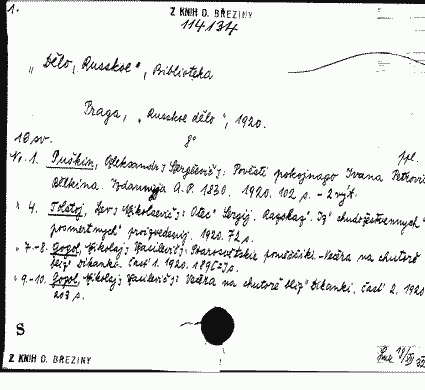 1.
Z KNIH O. BŘEZINY
114134
"Dělo, Russkoe", Biblioteka
Praga, "Russkoe dělo", 1920.
10 sv. 8°
Nr. 1. Puškin, Aleksandr Sergěevič: Pověsti pokojnago Ivana Petroviča ppl.
Bělkina. A.P. 1830. 1920. 102 s. - 2 výt.
" 4. Tolstoj, Lev Nikolaevič: Otec Sergij. Razskaz. Iz chudožestvennych
posmertnych proizvedenij. 1920. 72 s.
" 7.-8. Gogol, Nikolaj Vasilevič: Starosvětskie poměščiki - Večera na chutorě
bliz Dikanki. časť 1. 1920. 189 s.
" 9.-10. Gogol, Nikolaj Vasilevič: Večera na chutorě bliz Dikanki. časť 2. 1920.
213 s.
S
Z KNIH O. BŘEZINY